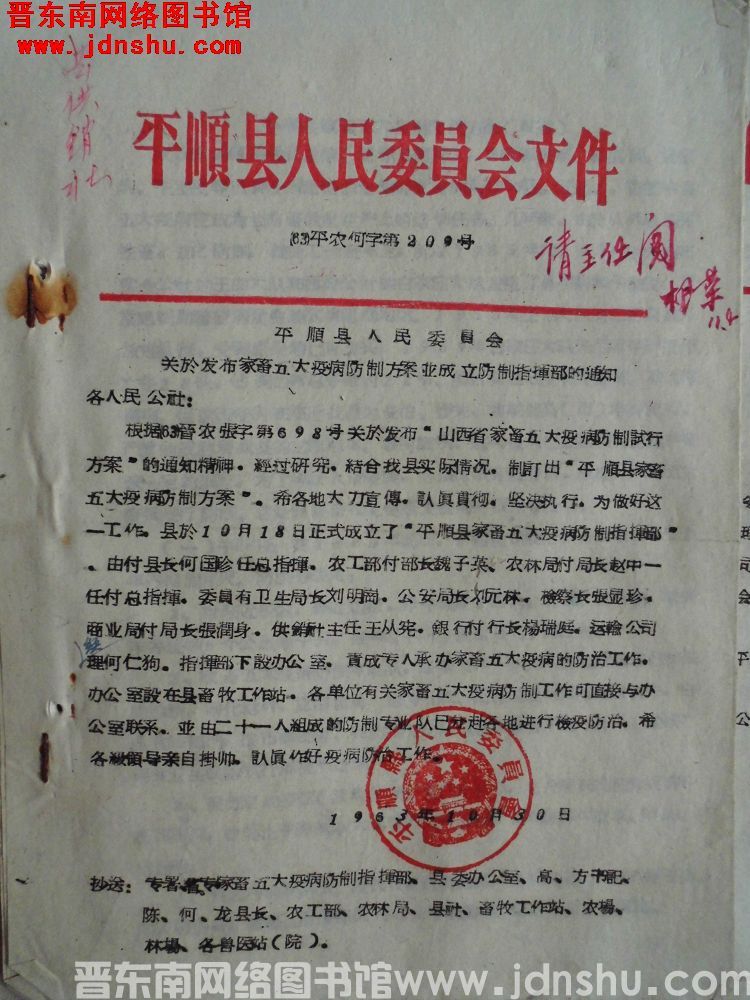 晋东南网络图书馆
www.jdnshu.com
县供銷社
平順县人民委員会文件
(63)平农何字第209号
请主任阅
相荣
11.2
平順县人民委員会
关於发布家畜五大疫病防制方案並成立防制指揮部的通知
各人民公社:
根据(63)晉农張字第698号关於发布“山西省家畜五大疫病防制試行
方案”的通知精神。經过研究。結合我县实际情况。制訂出“平順县家畜
五大疫病防制方案”。希各地大力宣傳。認眞貫彻。坚决执行。为做好这
一工作。县於10月18日正式成立了“平順县家畜五大疫病防制指揮部”
。由付县长何国珍任总指揮。农工部付部长魏子英、农林局付局长赵中一
任付总指揮。委員有卫生局长刘明崗。公安局长刘元林。檢察长張显珍。
商业局付局长張潤身。供銷社主任王从宪。銀行付行长楊瑞庭。运輸公司
經理何仁狗。指揮部下設办公室。責成专人承办家畜五大疫病的防治工作。
办公室設在县畜牧工作站。各单位有关家畜五大疫病防制工作可直接与办
公室联系。並由二十一人組成的防制专业队已分赴各地进行檢疫防治。希
各級領导亲自掛帅。認眞作好疫病防治工作。
平順縣人民委員會
1963年10月30日
抄送:专署畜五大疫病防制指揮部、县委办公室、高、方书記、
陈、何、龙县长、农工部、农林局、县社、畜牧工作站、农場、
林場、各兽医站(院)。
晋东南网络图书馆www.jdnshu.com